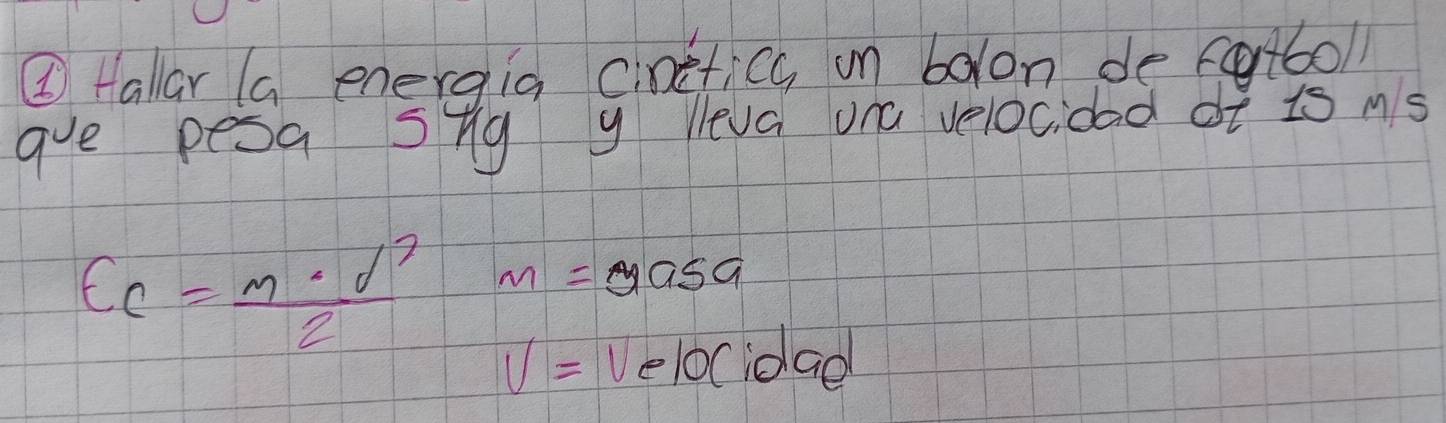 ① Hallar la energia cinética un balon de footboll
que pesa 5 Kg y lleva una velocidad de 15 m/s
Ec = m · d² / 2 m = masa
V = Velocidad